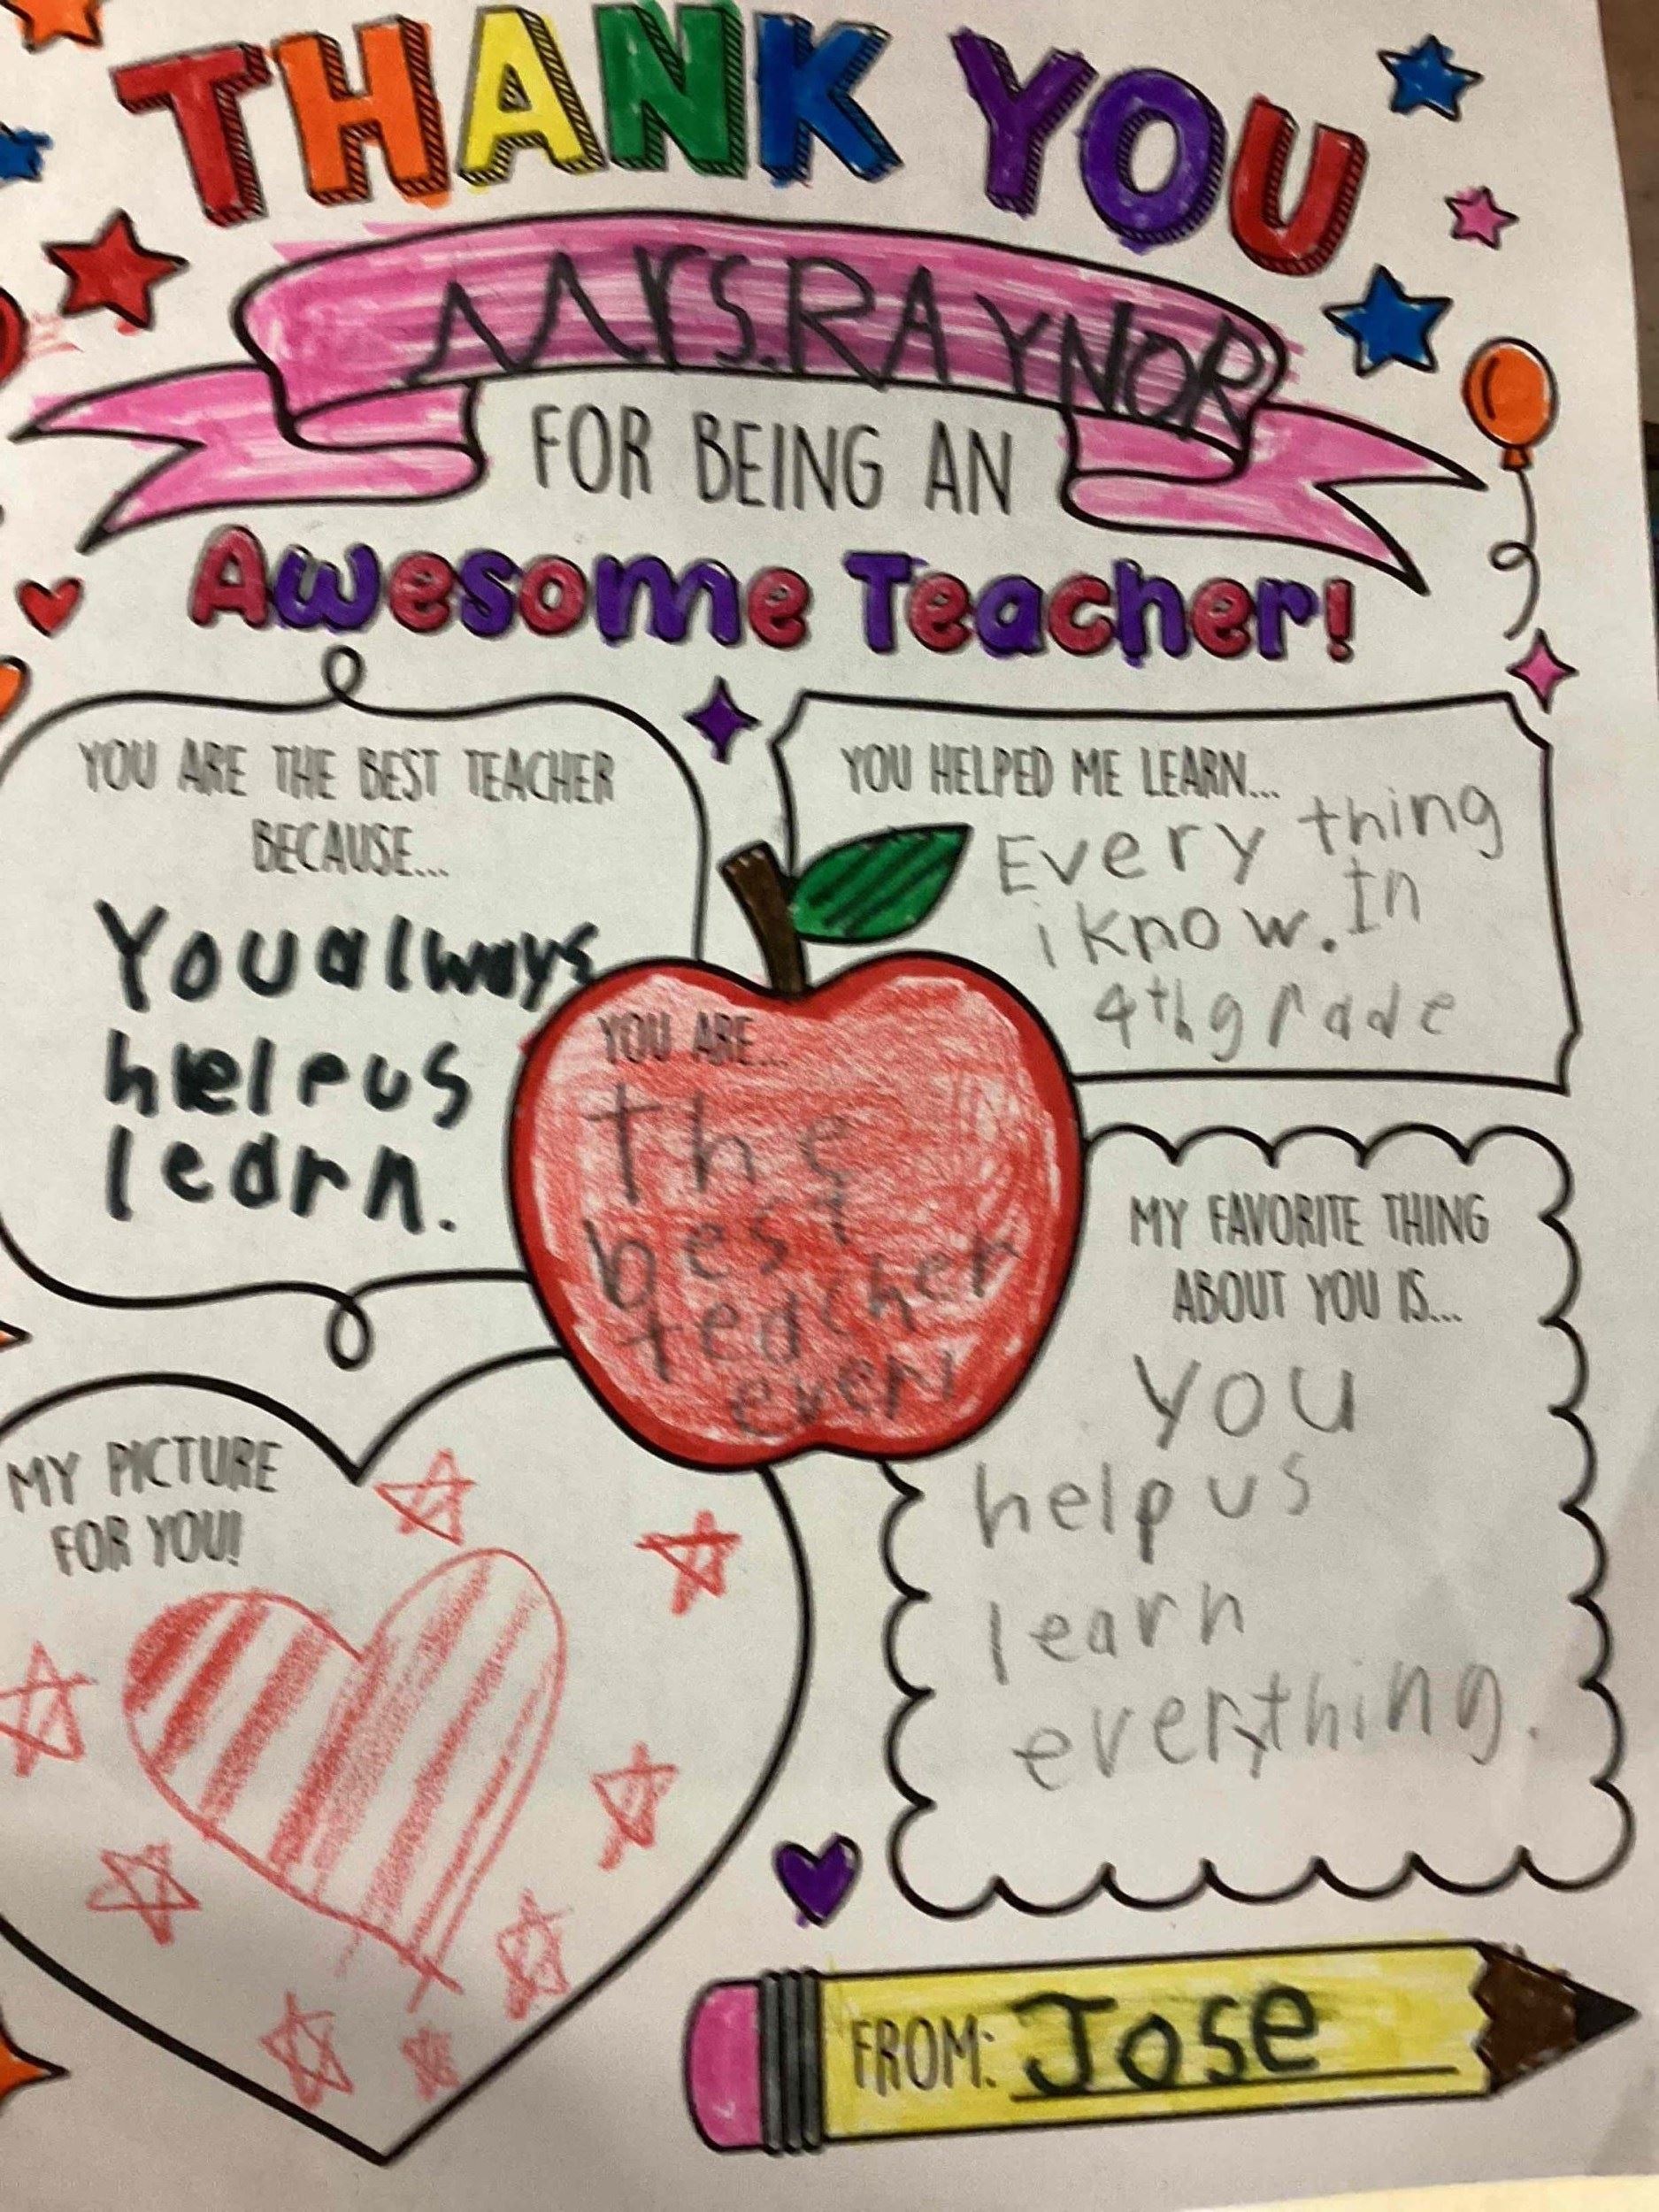 THANK YOU
Mrs. RAYNOR
FOR BEING AN
Awesome Teacher!
YOU ARE THE BEST TEACHER
BECAUSE...
You always
help us
learn.
YOU HELPED ME LEARN...
Every thing
i know. In
4th grade
YOU ARE...
The
best
teacher
ever!
MY FAVORITE THING
ABOUT YOU IS...
you
help us
learn
everything.
MY PICTURE
FOR YOU!
FROM: Jose